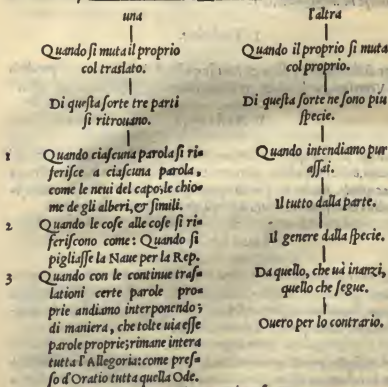 una
Quando ſi muta il proprio
col traslato.
Di queſta ſorte tre parti
ſi ritrouano.
1 Quando ciaſcuna parola ſi ri=
feriſce a ciaſcuna parola,
come le neui del capo; le chio=
me de gli alberi, & ſimili.
2 Quando le coſe alle coſe ſi ri=
feriſcono come: Quando ſi
pigliaſſe la Naue per la Rep.
3 Quando con le continue traſ=
lationi certe parole pro=
prie andiamo interponendo;
di maniera, che tolte uia eſſe
parole proprie; rimane intera
tutta l'Allegoria: come preſ=
ſo d'Oratio tutta quella Ode.
l'altra
Quando il proprio ſi muta
col proprio.
Di queſta ſorte ne ſono piu
ſpecie.
Quando intendiamo pur
aſſai.
Il tutto dalla parte.
Il genere dalla ſpecie.
Da quello, che uà inanzi,
quello che ſegue.
Ouero per lo contrario.